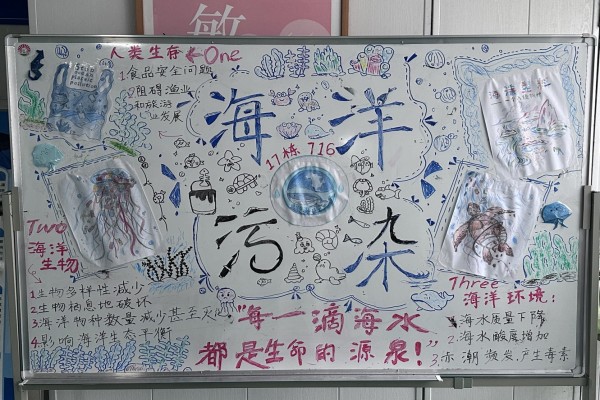 敏
人类生存 One
1.食品安全问题
2.阻碍渔业
和旅游
业发展
海洋
17栋 716
污染
Two
海洋
生物
1.生物多样性减少
2.生物栖息地破坏
3.海洋物种数量减少甚至灭
4.影响海洋生态平衡
"每一滴海水
都是生命的源泉!"
Three
海洋环境:
1.海水质量下降
2.海水酸度增加
3.赤潮频发,产生毒素